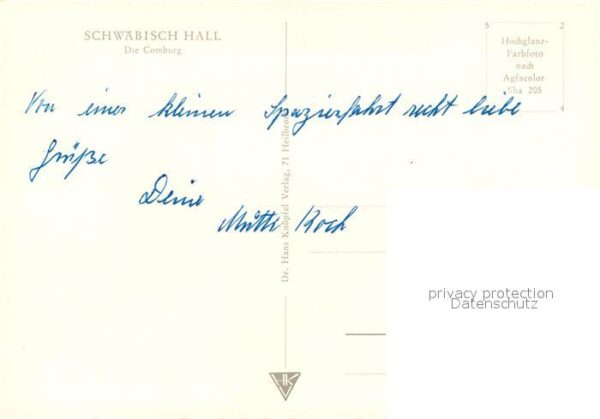 SCHWÄBISCH HALL
Die Comburg
5 2
Hochglanz-
Farbfoto
nach
Agfacolor
Sha 205
4
Von einer kleinen Spazierfahrt recht liebe
Grüße
Deine
Mutti Koch
Dr. Hans Knöpfel Verlag, 71 Heilbronn
HK
privacy protection
Datenschutz